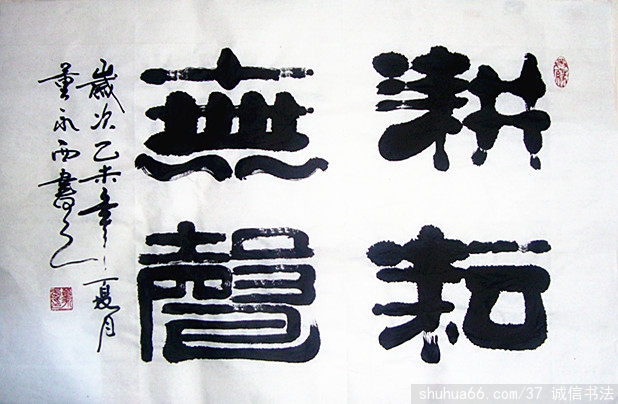 耕耘
無聲
歲次乙未年夏月
董永西書之
shuhua66.com/37 诚信书法